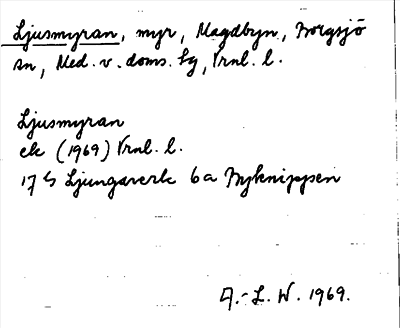 Ljusmyran, myr, Magdbyn, Borgsjö
sn, Med. v. doms. tg, Vrnl. l.
Ljusmyran
ek (1969) Vrnl. l.
17 G Ljungaverk 6 a Byknippsen
A.-L. W. 1969.